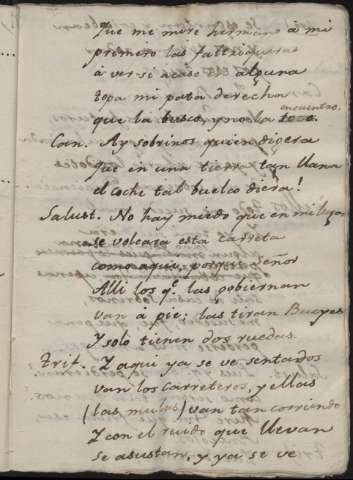 Que me mire hermano á mi
primero las faltriqueras
á ver si acaso en alguna
topa mi pata derecha
encuentro.
que la busco, y no la
Can. Ay sobrinos, quien digera
que en una tierra tan llana
el coche tal buelco diera!
Salust. No hay miedo que en mi lugar
se volcara esta carreta
como aqui, porque Señor
Alli los q.e las goviernan
van á pie; las tiran Bueyes
Y solo tienen dos ruedas.
Trif. Y aqui ya se ve sentados
van los carreteros, y ellas
(las mulas) van tan corriendo
Y con el ruido que llevan
se asustan, y ya se ve